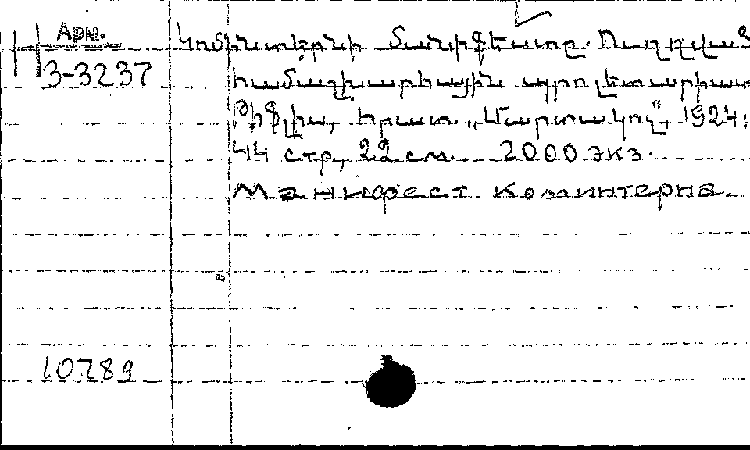 Арм.
3-3237
Կոմինտերնի մանիֆեստը. Ուղղված
համաշխարհային պրոլետարիատ
Թիֆլիս, հրատ. „Մարտակոչ", 1924.
44 стр, 22 см. 2000 экз.
Манифест Коминтерна.
10789